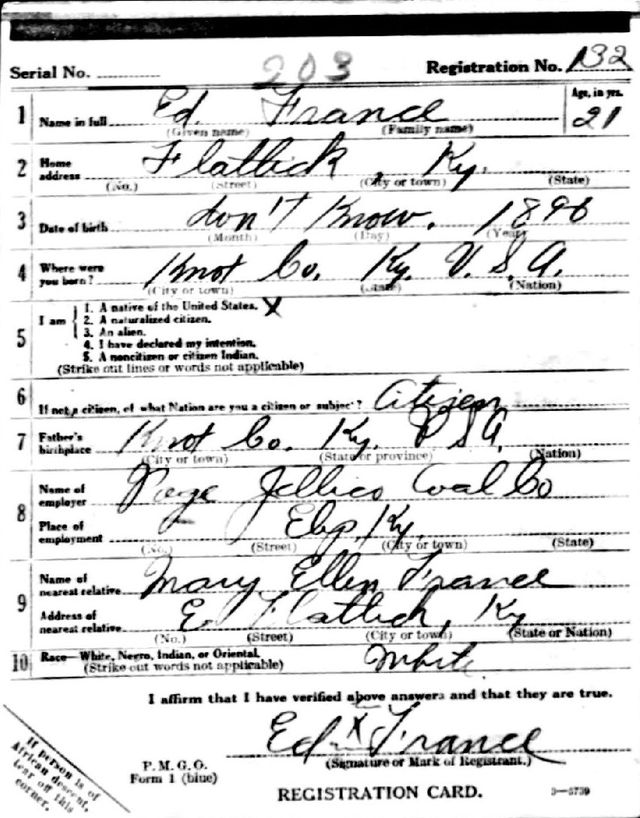 203
Serial No. Registration No. 132
1 Name in full Ed. France Age, in yrs. 21
(Given name) (Family name)
2 Home address Flatlick, Ky.
(No.) (Street) (City or town) (State)
3 Date of birth don't Know. 1896
(Month) (Day) (Year)
4 Where were you born? Knot Co. Ky. U.S.A.
(City or town) (State) (Nation)
5 I am
1. A native of the United States. X
2. A naturalized citizen.
3. An alien.
4. I have declared my intention.
5. A noncitizen or citizen Indian.
(Strike out lines or words not applicable)
6 If not a citizen, of what Nation are you a citizen or subject? Citizen
7 Father's birthplace Knot Co. Ky. U S A.
(City or town) (State or province) (Nation)
8 Name of employer Jellico Coal Co
Place of employment Ky.
(No.) (Street) (City or town) (State)
9 Name of nearest relative Mary Ellen France
Address of nearest relative E. Flatlick, Ky
(No.) (Street) (City or town) (State or Nation)
10 Race—White, Negro, Indian, or Oriental. White
(Strike out words not applicable)
I affirm that I have verified above answers and that they are true.
Ed X France
(Signature or Mark of Registrant.)
P. M. G. O.
Form 1 (blue)
REGISTRATION CARD. 3—6739
If person is of
African descent,
tear off this
corner.